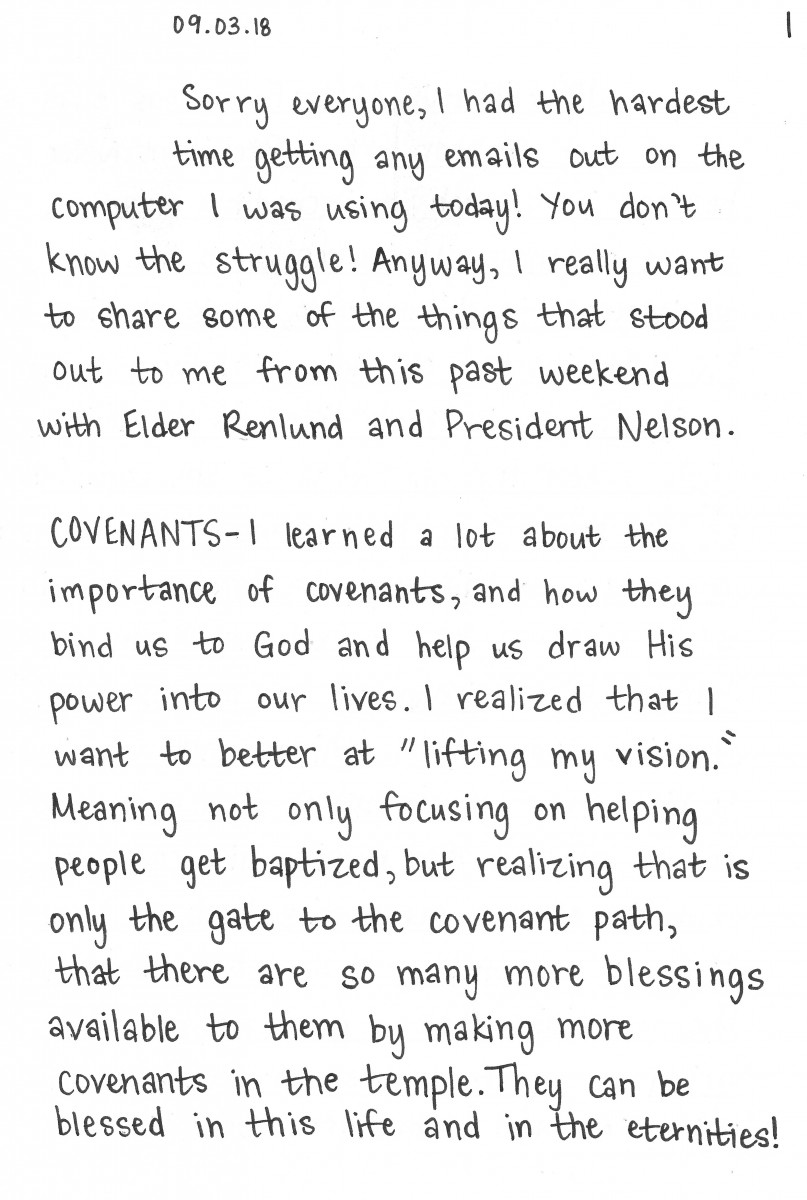 09.03.18 1
Sorry everyone, I had the hardest
time getting any emails out on the
computer I was using today! You don't
know the struggle! Anyway, I really want
to share some of the things that stood
out to me from this past weekend
with Elder Renlund and President Nelson.
COVENANTS-I learned a lot about the
importance of covenants, and how they
bind us to God and help us draw His
power into our lives. I realized that I
want to better at "lifting my vision."
Meaning not only focusing on helping
people get baptized, but realizing that is
only the gate to the covenant path,
that there are so many more blessings
available to them by making more
covenants in the temple. They can be
blessed in this life and in the eternities!